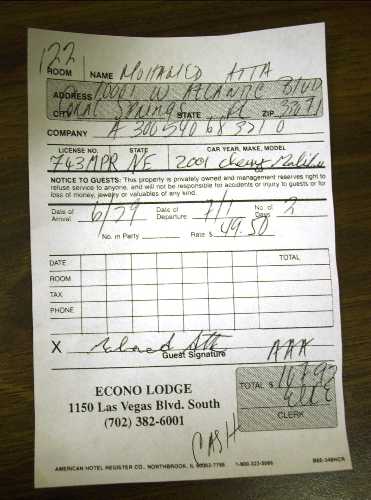 122
ROOM NAME MOHAMED ATTA
ADDRESS 10001 W ATLANTIC BLVD
CITY CORAL SPRINGS STATE FL ZIP 33071
COMPANY A 300 540 68 321 0
LICENSE NO. STATE CAR YEAR, MAKE, MODEL
743MPR NE 2001 chevy Malibu
NOTICE TO GUESTS: This property is privately owned and management reserves right to
refuse service to anyone, and will not be responsible for accidents or injury to guests or for
loss of money, jewelry or valuables of any kind.
Date of Arrival 6/29 Date of Departure 7/1 No. of Days 2
No. in Party Rate $ 49.50
DATE TOTAL
ROOM
TAX
PHONE
X
Guest Signature AAA
ECONO LODGE TOTAL $ 107.92
1150 Las Vegas Blvd. South
(702) 382-6001 CLERK
CASH
AMERICAN HOTEL REGISTER CO., NORTHBROOK, IL 60062-7798 1-800-323-5686